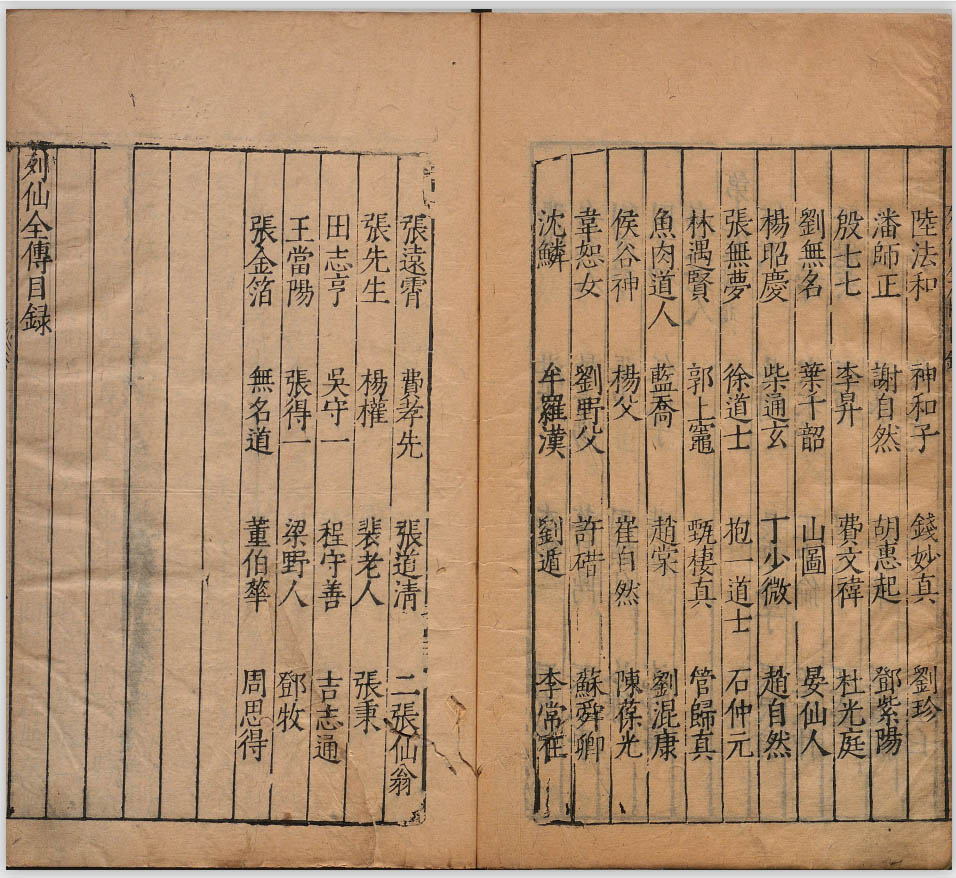 陸法和　神和子　錢妙真　劉珍
潘師正　謝自然　胡惠起　鄧紫陽
殷七七　李昇　費文禕　杜光庭
劉無名　葉千韶　山圖　晏仙人
楊昭慶　柴通玄　丁少微　趙自然
張無夢　徐道士　抱一道士　石仲元
林遇賢　郭上竈　甄棲真　管歸真
魚肉道人　藍喬　趙棠　劉混康
侯谷神　楊父　崔自然　陳葆光
韋恕女　劉野父　許碏　蘇舜卿
沈鱗　牟羅漢　劉遁　李常在
張遠霄　費孝先　張道清　二張仙翁
張先生　楊權　裴老人　張秉
田志亨　吳守一　程守善　吉志通
王當陽　張得一　梁野人　鄧牧
張金箔　無名道　董伯華　周思得
列仙全傳目録